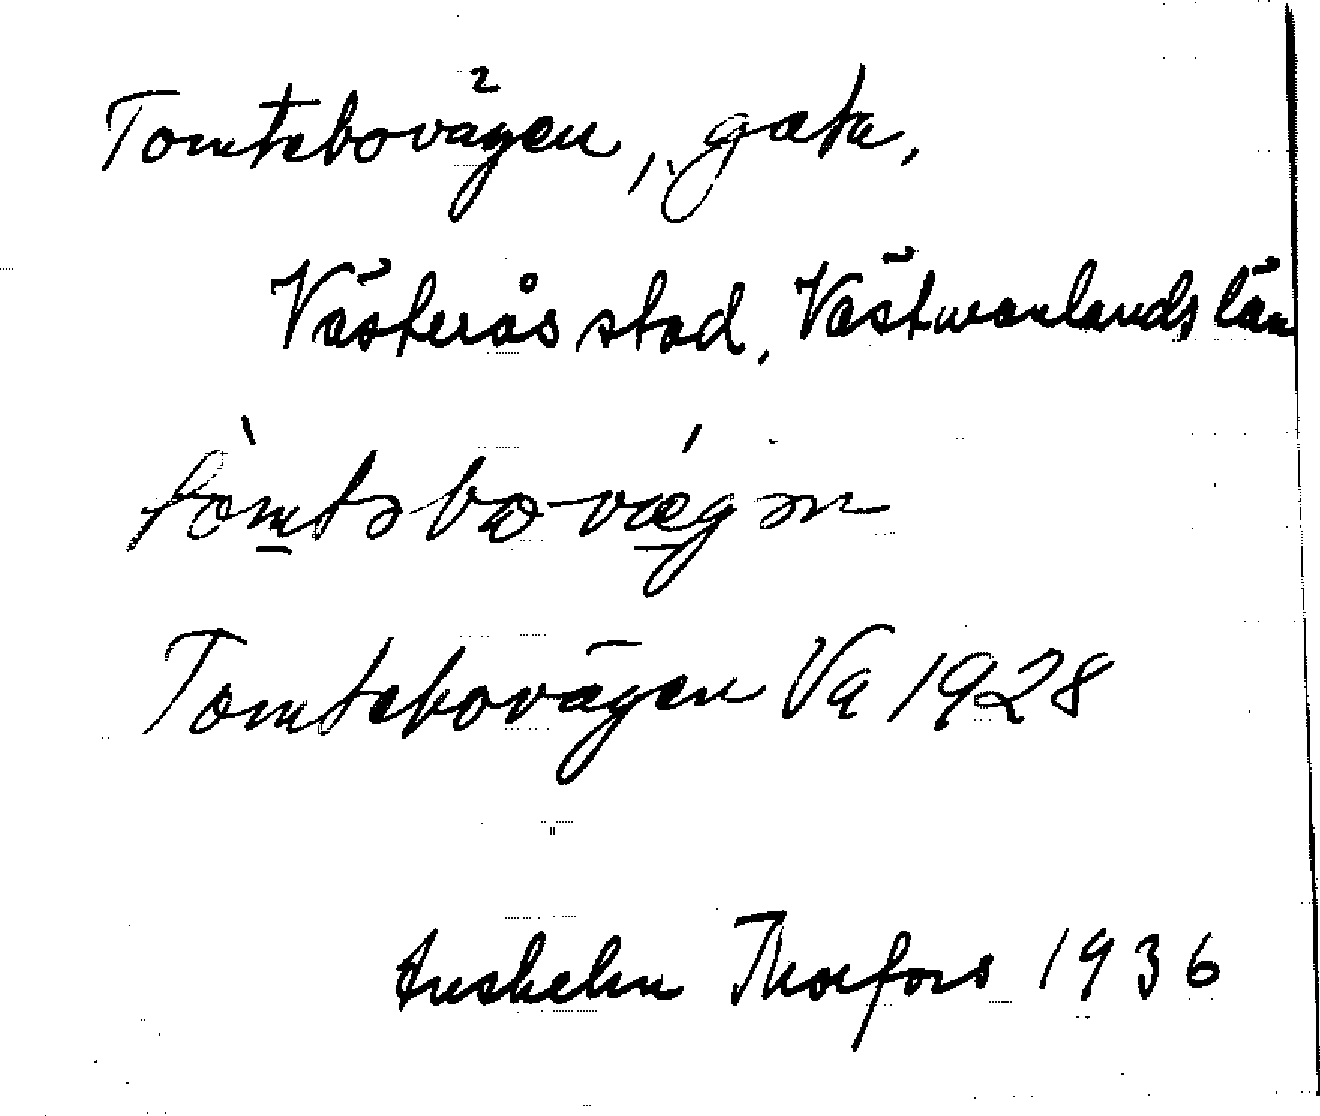 Tomtebovägen, gata,
Västerås stad, Västmanlands län
tòmtəbo-vǽgən
Tomtebovägen Va 1928
Anshelm Thorfors 1936